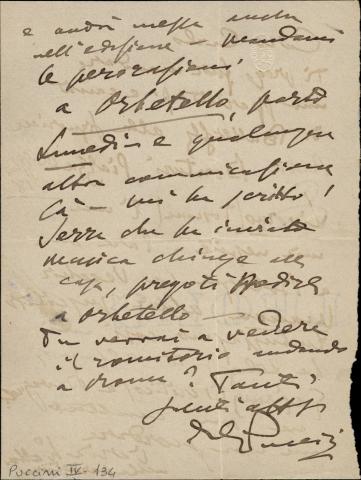 e andrà messa anche
nell'edizione – mandami
le
a Orbetello, parto
Lunedì e qualunque
altra comunicazione
là – mi ha scritto
Serra che ha inviato
musica chiusa alla
casa, pregoti spedirla
a Orbetello –
Tu verrai a vedere
il romitorio andando
a Roma? Tanti
saluti aff
Puccini
Puccini IV - 134